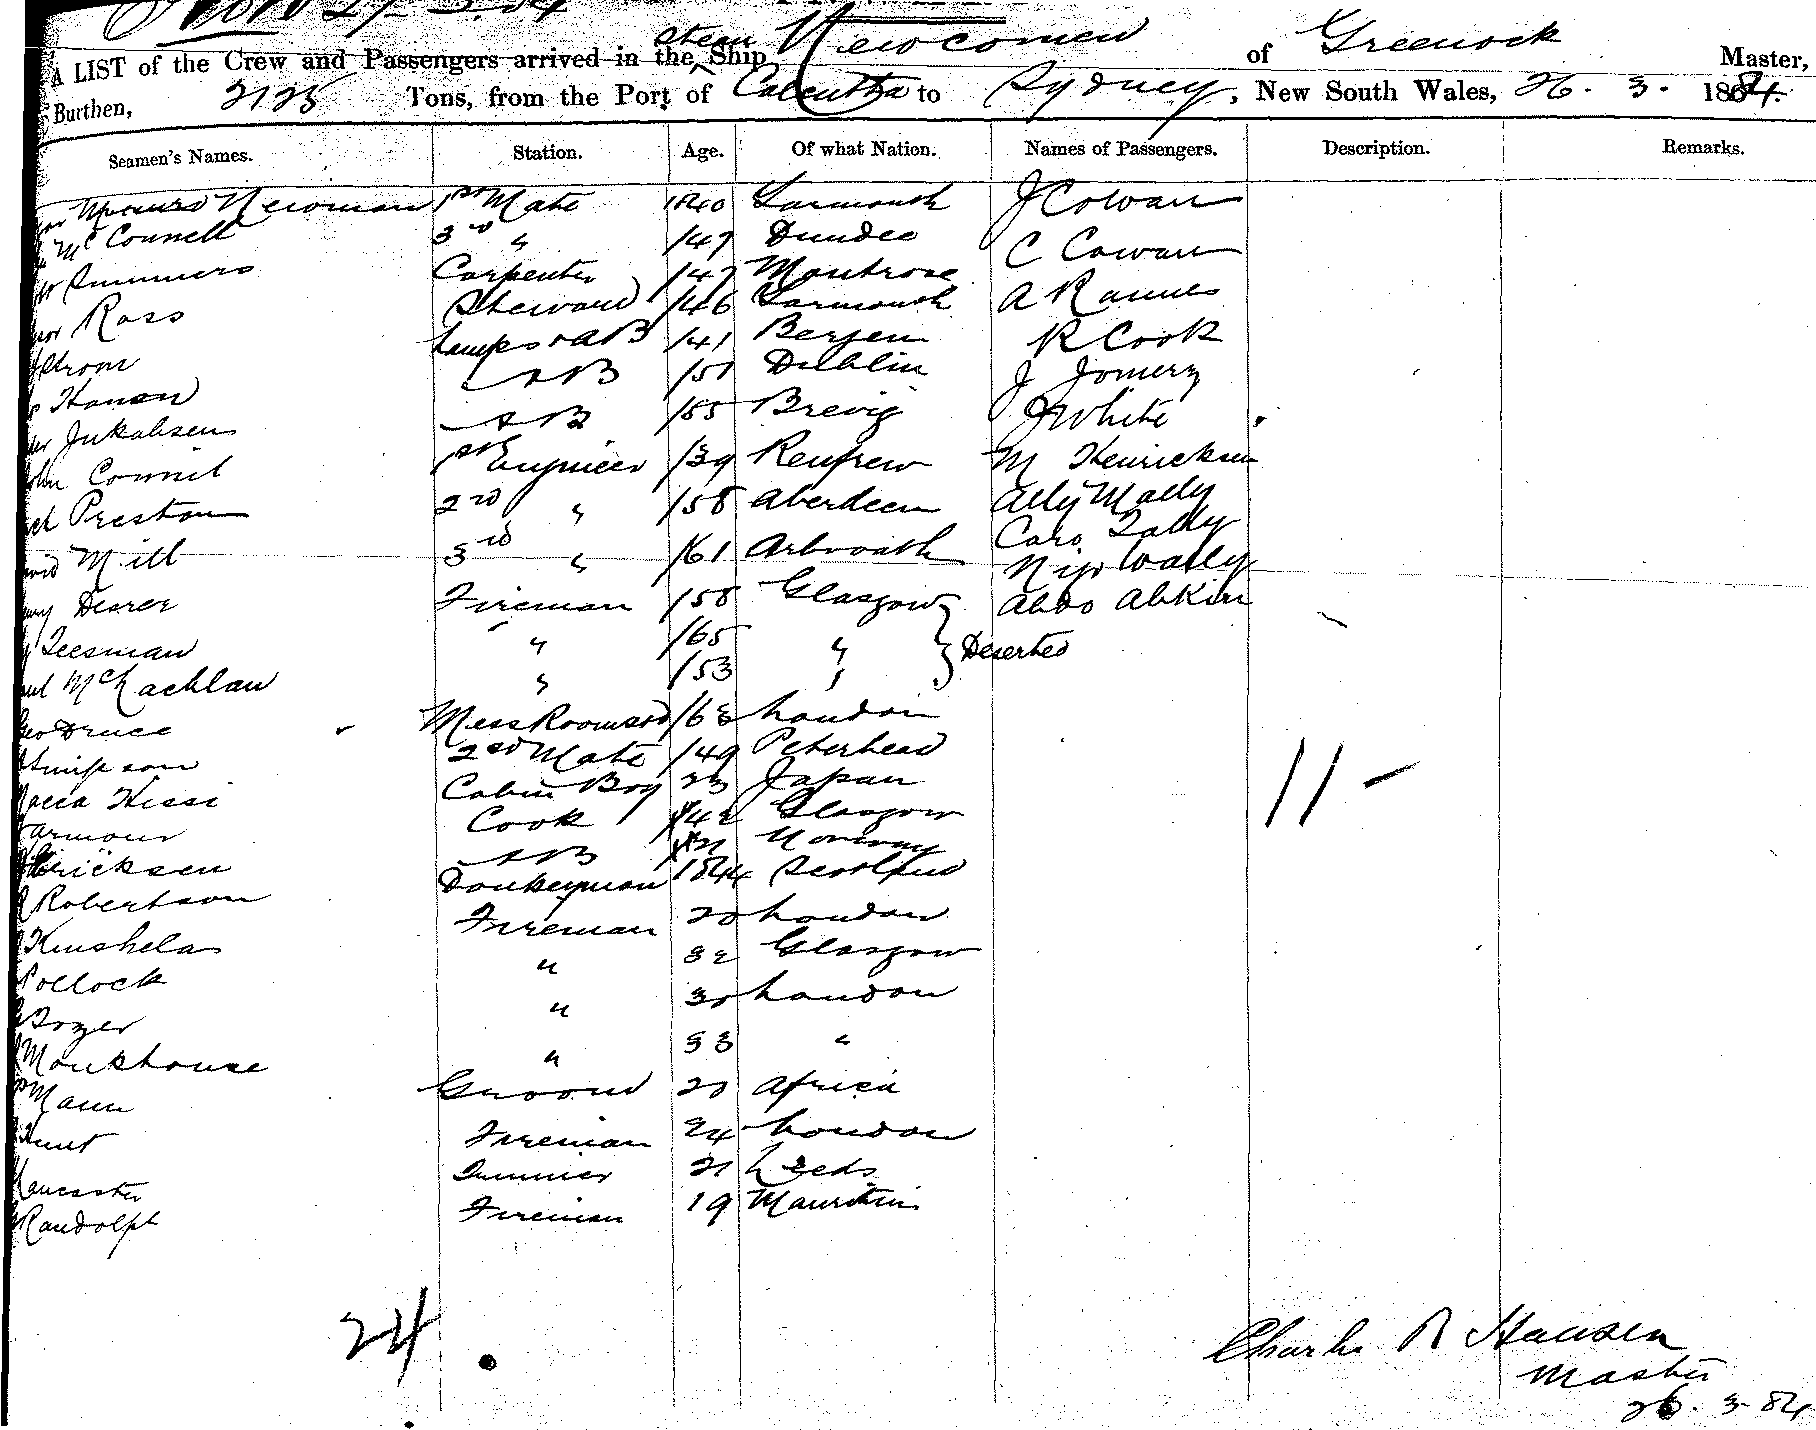 steam Newcomen of Greenock
A LIST of the Crew and Passengers arrived in the Ship Master,
Burthen, 2125 Tons, from the Port of Calcutta to Sydney, New South Wales, 26. 3. 1884.
Seamen's Names. Station. Age. Of what Nation. Names of Passengers. Description. Remarks.
Newman 1st Mate 1840 Yarmouth J Cowan
McConnell 3rd " /47 Dundee C Cowan
Summers Carpenter /47 Montrose A
Ross Steward /46 Yarmouth R Cook
Lamps & AB /41 Bergen J
Hansen AB /51 Dublin J White
Jukabsen AB /55 Brevig M Henricksen
John Connil 1st Engineer /39 Renfrew Ally Mally
Preston 2nd " /58 Aberdeen Caro Tally
Mill 3rd " /61 Arbroath Wally
Fireman /58 Glasgow Abdo
Teesman " /65 " Deserted
McLachlan " /53 "
Geo Druce Mess Room /63 London
Simpson 2nd Mate /49 Peterhead
Hissi Cabin Boy 23 Japan
Armour Cook /42 Glasgow
Ericksen AB Norway
Robertson Donkeyman 1844 Scotland
Kinshela Fireman 20 London
Pollock " 32 Glasgow
" 30 London
Monkhouse " 33 "
Mann Groom 20 Africa
Hunt Fireman 24 London
Lancaster Trimmer 21 Leeds
Randolph Fireman 19
11 -
24
Charles R Hansen
Master
26. 3. 84